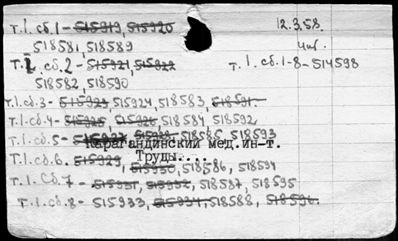 т.1.сб.1- 515919, 515920 12.3.58.
518581, 518589 Чит.
т.1. сб.2- 515921, 515922 т.1.сб.1-8-514598
518582, 518590
т.1.сб.3- 515923, 515924, 518583, 518591.
т.1.сб.4- 515925, 515926, 518584, 518592
т.1.сб.5- 515927, 515928, 518585, 518593
Карагандинский мед.ин-т.
Труды....
т.1.сб.6. 515929, 515930, 518586, 518594
т.1.Сб.7- 515931, 515932, 518587, 518595
т.1.сб.8- 515933, 515934, 518588, 518596.